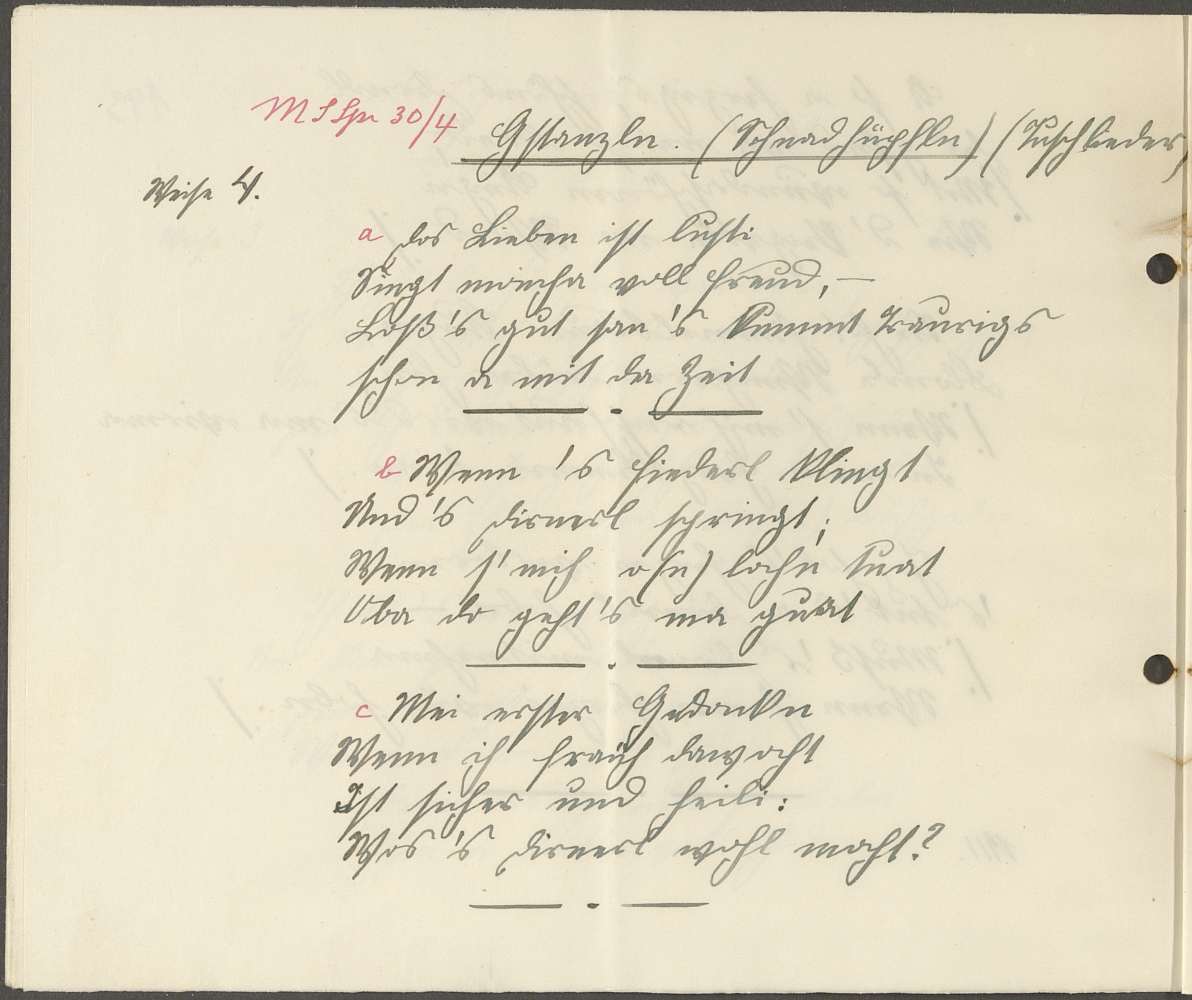 MSSpr 30/4
Gstanzln. (Schnadhüpfln) (Tuschlieder)
Weise 4.
a Dos Lieben ist lusti
Singt moncha voll Freud, –
Loß's gut san 's kummt Traurigs
schon a mit da Zeit
b Wenn 's Fiederl klingt
Und 's Dirnerl springt;
Wenn s' mich o(n) lochn tuat
Oba do geht's ma guat
c Mei erster Gedonkn
Wenn ich fruah dawocht
Ist sicher und heili:
Wos 's Dirnerl wohl mocht?